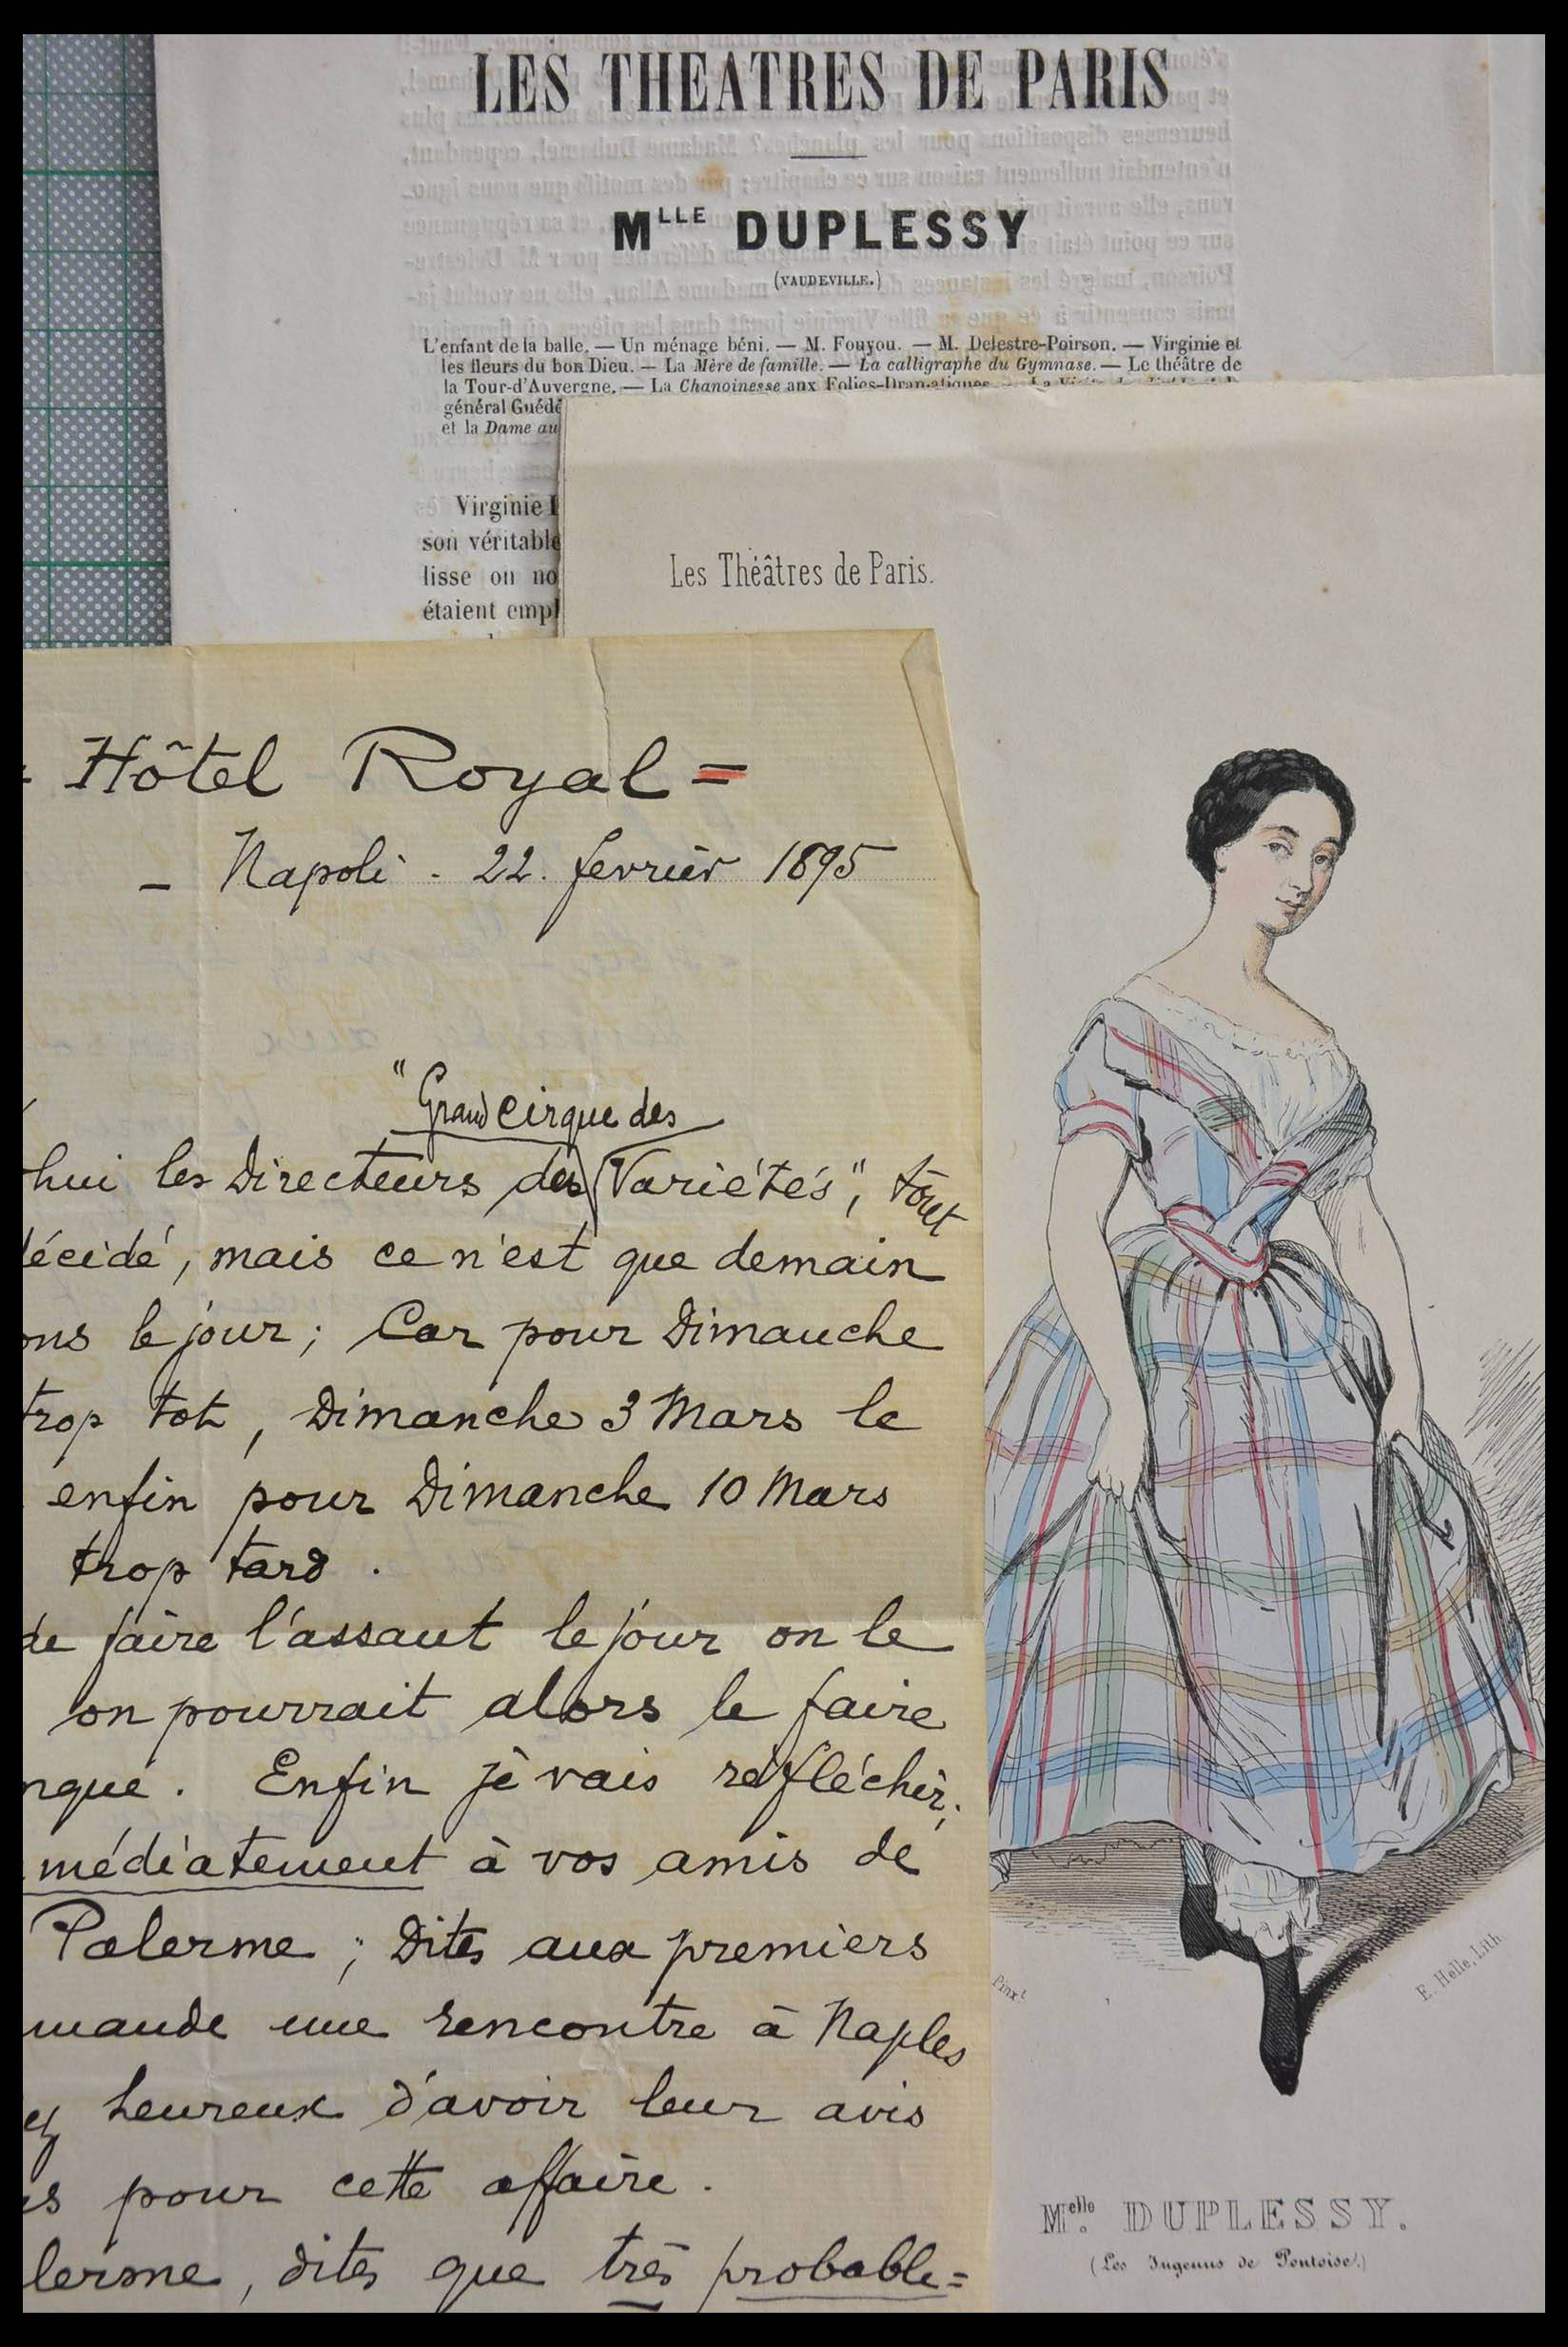 LES THEATRES DE PARIS
MLLE DUPLESSY
(VAUDEVILLE.)
L'enfant de la balle. — Un ménage béni. — M. Fouyou. — M. Delestre-Poirson. — Virginie et
les fleurs du bon Dieu. — La Mère de famille. — La calligraphe du Gymnase. — Le théâtre de
la Tour-d'Auvergne. — La Chanoinesse aux Folies-Dramatiques
général Guédé
et la Dame au
Virginie
son véritable
lisse on no
étaient empl
Les Théâtres de Paris.
= Hôtel Royal =
- Napoli - 22. fevrièr 1895
"Grand cirque des
hui les Directeurs des Variétés", tout
décidé, mais ce n'est que demain
ons le jour; Car pour Dimanche
trop tot, Dimanche 3 Mars le
enfin pour Dimanche 10 Mars
trop tard.
de faire l'assaut le jour on le
on pourrait alors le faire
nque. Enfin je vais réfléchir;
médiatement à vos amis de
Palerme; Dites aux premiers
mande une rencontre à Naples
ez heureux d'avoir leur avis
is pour cette affaire.
lerme, dites que très probable=
Pinxt
E. Helle, Lith
Melle DUPLESSY.
(Les Ingenus de Pontoise.)